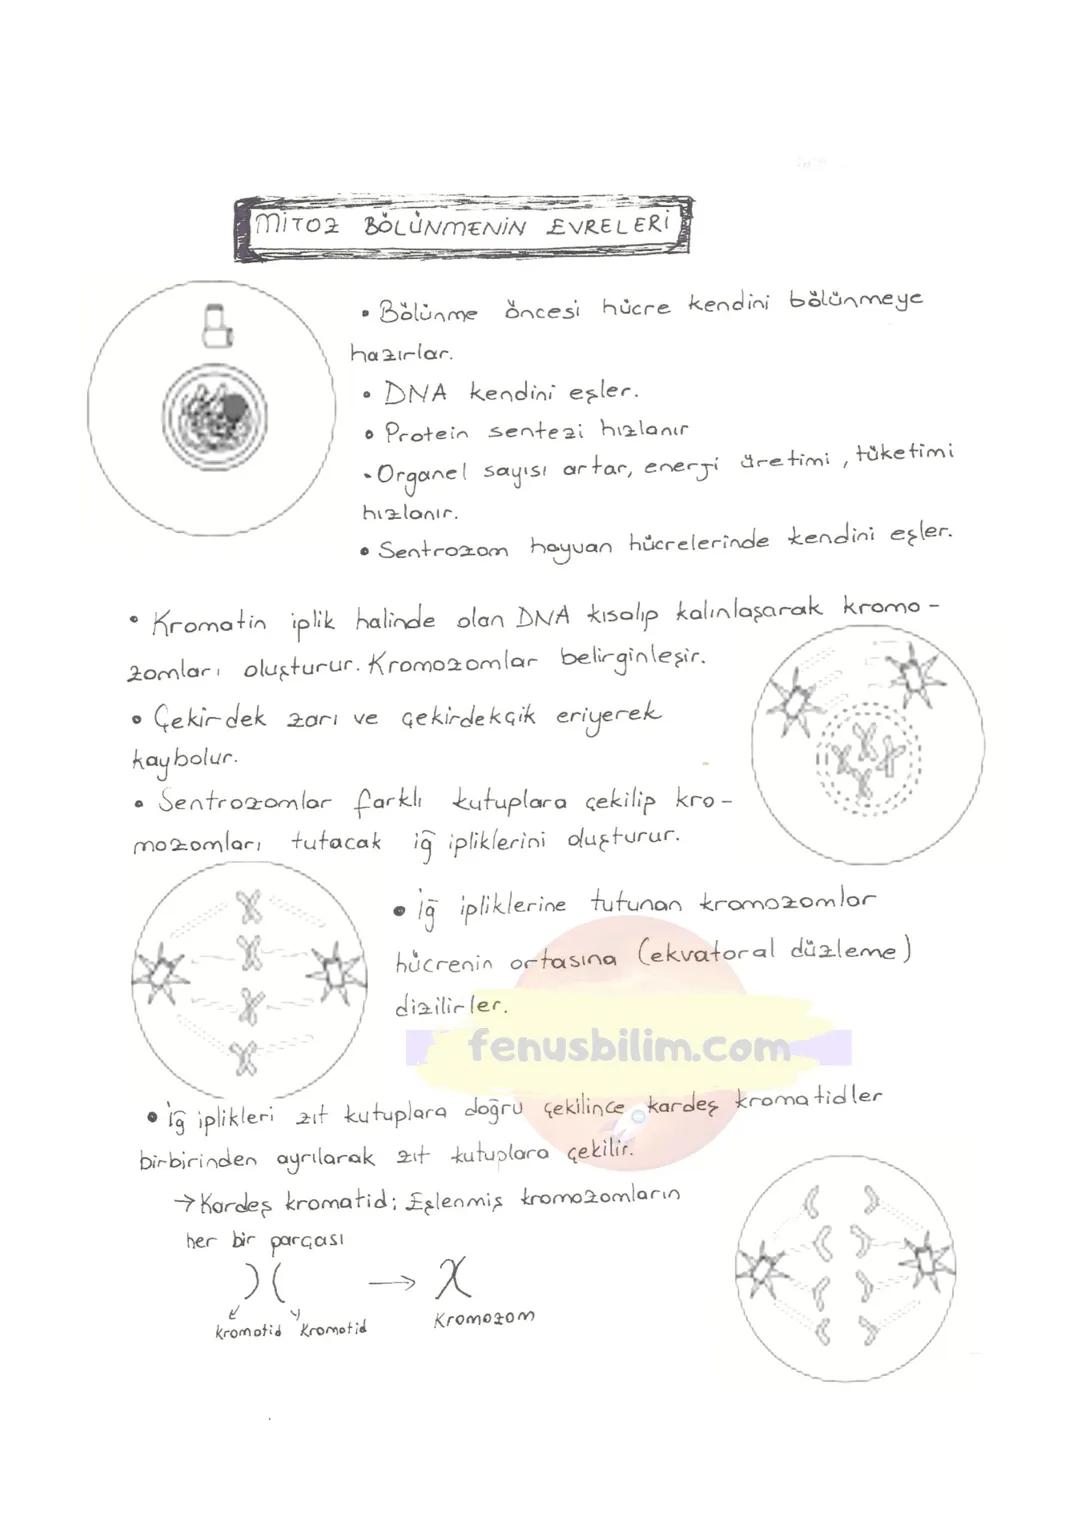 MİTOZ BÖLÜNMENİN EVRELERİ
• Bölünme öncesi hücre kendini bölünmeye
hazırlar.
• DNA kendini eşler.
• Protein sentezi hızlanır
• Organel sayısı artar, enerji üretimi, tüketimi
hızlanır.
• Sentrozom hayvan hücrelerinde kendini eşler.
• Kromatin iplik halinde olan DNA kısalıp kalınlaşarak kromo-
zomları oluşturur. Kromozomlar belirginleşir.
• Çekirdek zarı ve çekirdekçik eriyerek
kaybolur.
• Sentrozomlar farklı kutuplara çekilip kro-
mozomları tutacak iğ ipliklerini oluşturur.
• İğ ipliklerine tutunan kromozomlar
hücrenin ortasına (ekvatoral düzleme)
dizilirler.
fenusbilim.com
• İğ iplikleri zıt kutuplara doğru çekilince kardeş kromatidler
birbirinden ayrılarak zıt kutuplara çekilir.
→ Kardeş kromatid; Eşlenmiş kromozomların
her bir parçası
) ( → X
kromatid kromatid kromozom